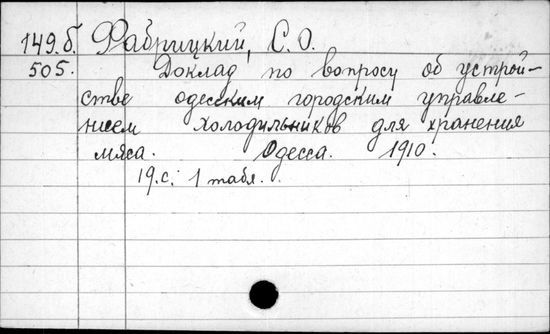 149.б. Фабрицкий, С. О.
505. Доклад по вопросу об устрой-
стве одесским городским управле-
нием холодильников для хранения
мяса. Одесса. 1910.
19.с. 1 табл.